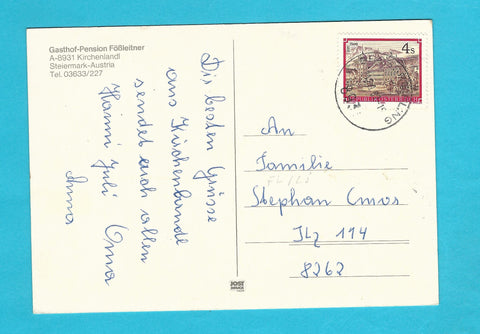 Gasthof-Pension Fößleitner
A-8931 Kirchenlandl
Steiermark-Austria
Tel. 03633/227
Die besten Grüsse
aus Kirchenlandl
sendet euch allen
Hanni Juli Oma
Anna
4 s
REPUBLIK ÖSTERREICH
An
Familie
Stephan
Ilz 114
8262
JOST